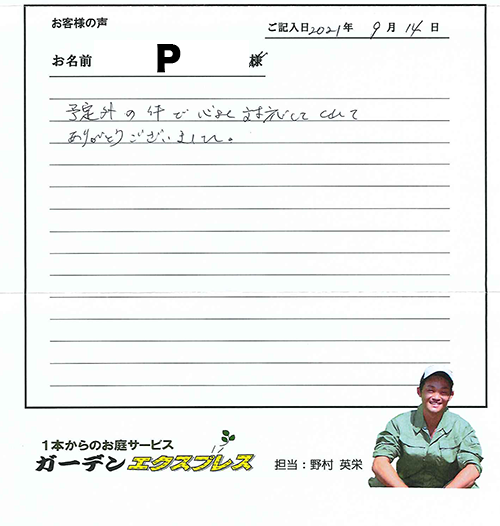 お客様の声
ご記入日2021年 9月 14日
お名前 P 様
予定外の件で心よく対応して くれて
ありがとうございました。
1本からのお庭サービス
ガーデンエクスプレス
担当：野村 英栄